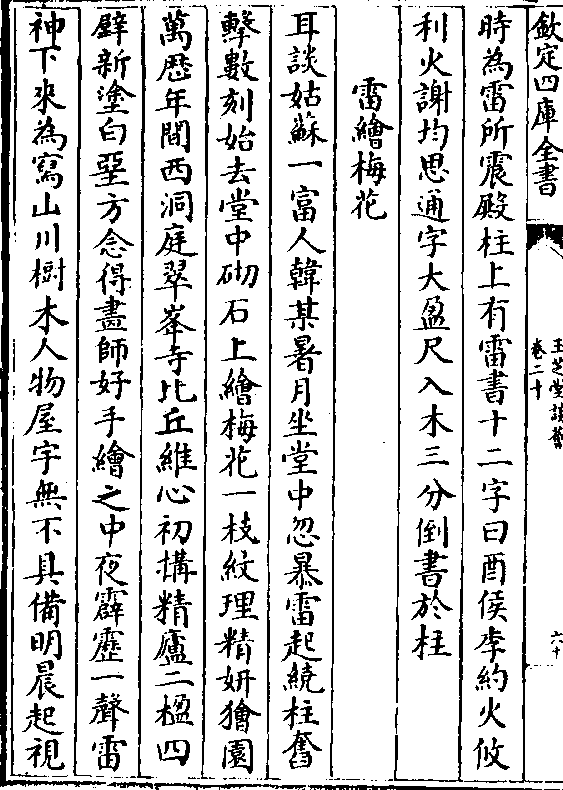 欽定四庫全書
玉芝堂談薈
卷二十
六十
時為雷所震殿柱上有雷書十二字曰酉侯李約火攸
利火謝均思通字大盈尺入木三分倒書於柱
雷繪梅花
耳談姑蘇一富人韓某暑月坐堂中忽暴雷起繞柱奮
擊數刻始去堂中砌石上繪梅花一枝紋理精妍獪園
萬歴年間西洞庭翠峯寺比丘維心初搆精廬二楹四
壁新塗白堊方念得畫師好手繪之中夜霹靂一聲雷
神下來為寫山川樹木人物屋宇無不具備明晨起視